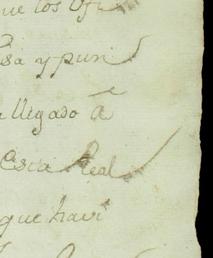 que los Ofi
sa y pun
llegado á
Esta Real
que havi